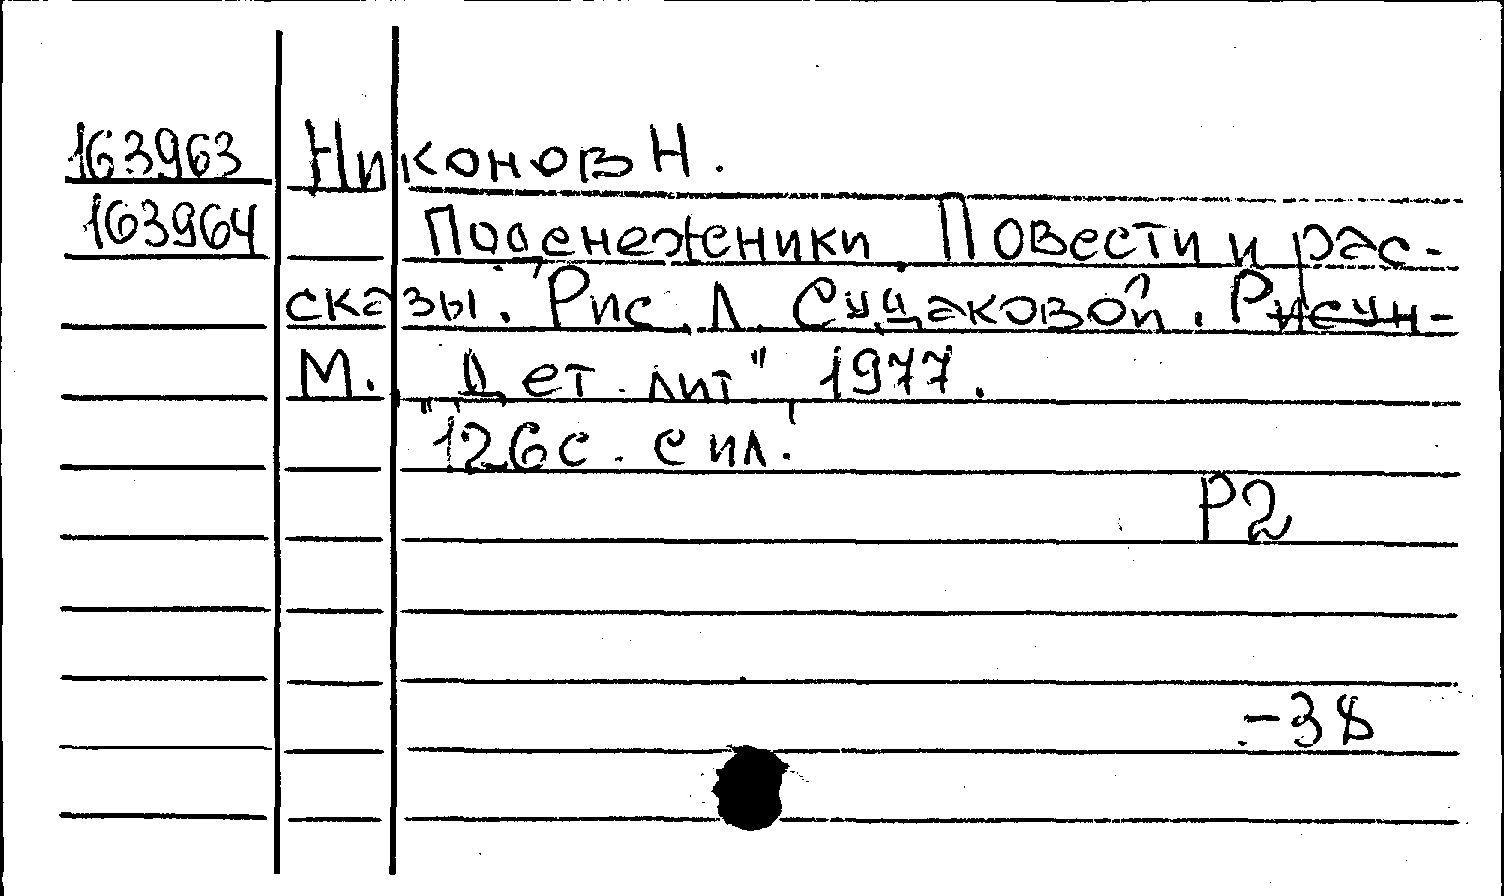 163963 Никонов Н.
163964 Поденежники. Повести и рас-
сказы. Рис. Л. Сущаковой. Рисун-
М. "Дет. лит" 1977.
126с. с ил.
Р2
-38